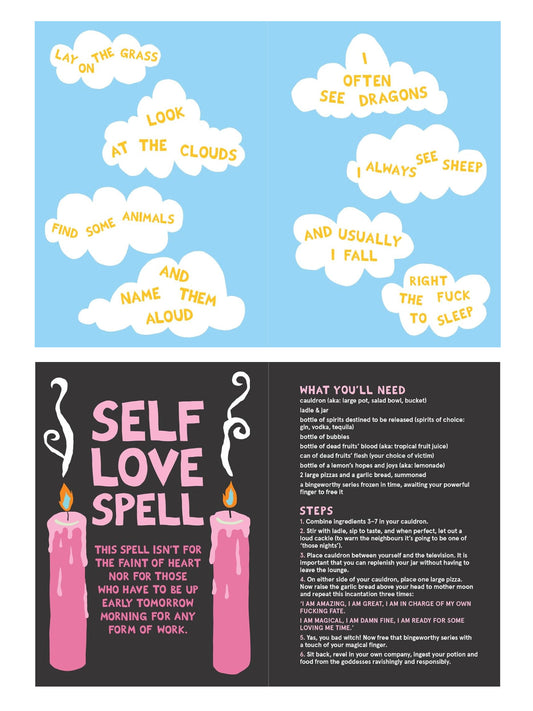 LAY ON THE GRASS
LOOK
AT THE CLOUDS
FIND SOME ANIMALS
AND
NAME THEM
ALOUD
I
OFTEN
SEE DRAGONS
I ALWAYS SEE SHEEP
AND USUALLY
I FALL
RIGHT
THE FUCK
TO SLEEP
SELF
LOVE
SPELL
THIS SPELL ISN'T FOR
THE FAINT OF HEART
NOR FOR THOSE
WHO HAVE TO BE UP
EARLY TOMORROW
MORNING FOR ANY
FORM OF WORK.
WHAT YOU'LL NEED
cauldron (aka: large pot, salad bowl, bucket)
ladle & jar
bottle of spirits destined to be released (spirits of choice:
gin, vodka, tequila)
bottle of bubbles
bottle of dead fruits' blood (aka: tropical fruit juice)
can of dead fruits' flesh (your choice of victim)
bottle of a lemon's hopes and joys (aka: lemonade)
2 large pizzas and a garlic bread, summoned
a bingeworthy series frozen in time, awaiting your powerful
finger to free it
STEPS
1. Combine ingredients 3–7 in your cauldron.
2. Stir with ladle, sip to taste, and when perfect, let out a
loud cackle (to warn the neighbours it's going to be one of
'those nights').
3. Place cauldron between yourself and the television. It is
important that you can replenish your jar without having to
leave the lounge.
4. On either side of your cauldron, place one large pizza.
Now raise the garlic bread above your head to mother moon
and repeat this incantation three times:
'I AM AMAZING, I AM GREAT, I AM IN CHARGE OF MY OWN
FUCKING FATE.
I AM MAGICAL, I AM DAMN FINE, I AM READY FOR SOME
LOVING ME TIME.'
5. Yas, you bad witch! Now free that bingeworthy series with
a touch of your magical finger.
6. Sit back, revel in your own company, ingest your potion and
food from the goddesses ravishingly and responsibly.